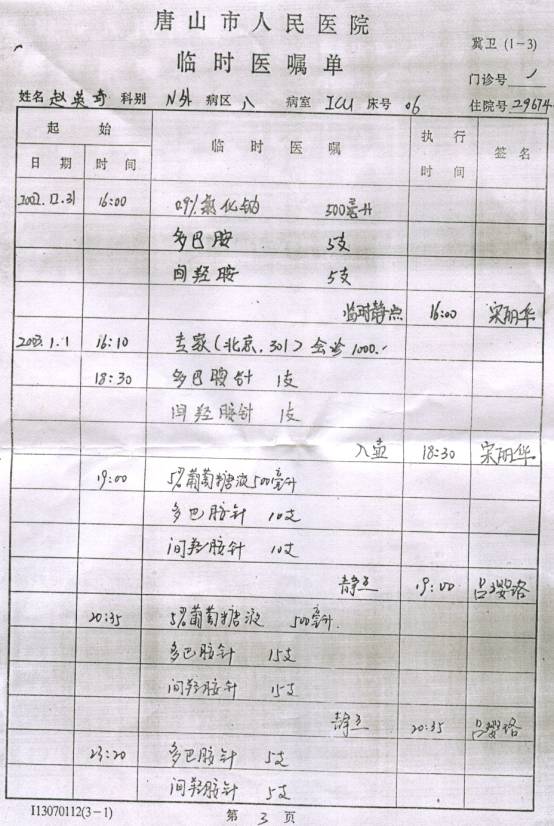 唐山市人民医院
冀卫 (1-3)
临时医嘱单
门诊号
姓名 赵英奇 科别 N外 病区 八 病室 ICU 床号 06 住院号 29674
起 始 临 时 医 嘱 执 行 签 名
日 期 时 间 时 间
2002.12.31 16:00 0.9%氯化钠 500毫升
多巴胺 5支
间羟胺 5支
临时静点 16:00 宋丽华
2003.1.1 16:10 专家(北京.301)会诊 1000.-
18:30 多巴胺针 1支
间羟胺针 1支
入壶 18:30 宋丽华
19:00 5%葡萄糖液 500毫升
多巴胺针 10支
间羟胺针 10支
静点 19:00
20:35 5%葡萄糖液 500毫升
多巴胺针 15支
间羟胺针 15支
静点 20:35
23:20 多巴胺针 5支
间羟胺针 5支
I13070112(3-1) 第 3 页